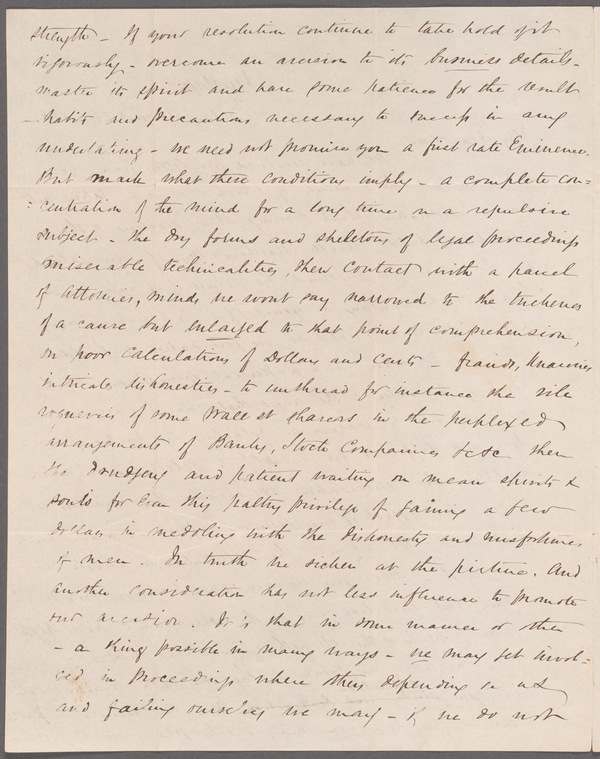 strength – If your resolution continue to take hold of it
vigorously – overcome an aversion to its business details –
master its spirit and have some patience for the result
– habits and precautions necessary to success in any
undertaking – we need not promise you a first rate Eminence.
But mark what these conditions imply – a complete con=
=centration of the mind for a long time on a repulsive
subject – the dry forms and skeletons of legal proceedings
miserable technicalities, then contact with a
of Attornies, minds we wont say narrowed to the
of a cause but enlarged to that point of comprehension,
on poor calculations of Dollars and Cents – frauds, knaveries
intricate dishonesties – to unthread for instance the vile
rogueries of some Wall st sharers in the perplexed
arrangements of Banks, Stock Companies &c &c then
the Drudgery and patient waiting on mean spirits &
souls for even this paltry privilege of gaining a few
dollars in meddling with the dishonesty and misfortunes
of men. In truth we sicken at the picture. And
another consideration has not less influence to promote
our aversion. It is that in some manner or other
– a thing possible in many ways – we may get invol-
ved in Proceedings where others depending on us
and failing ourselves we may – if we do not